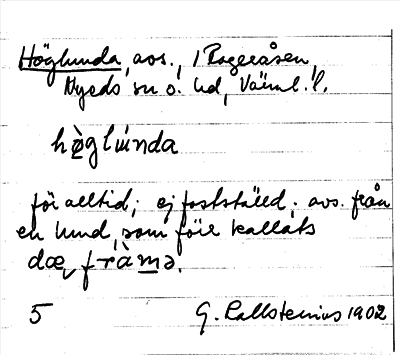 Höglunda, avs., i Rageråsen,
Nyeds sn o. hd, Värml. l.
hö̀glúnda
för alltid; ej fastställd; avs. från
en lund, som förr kallats
dæ, frà̱mə.
5 G. Kallstenius 1902